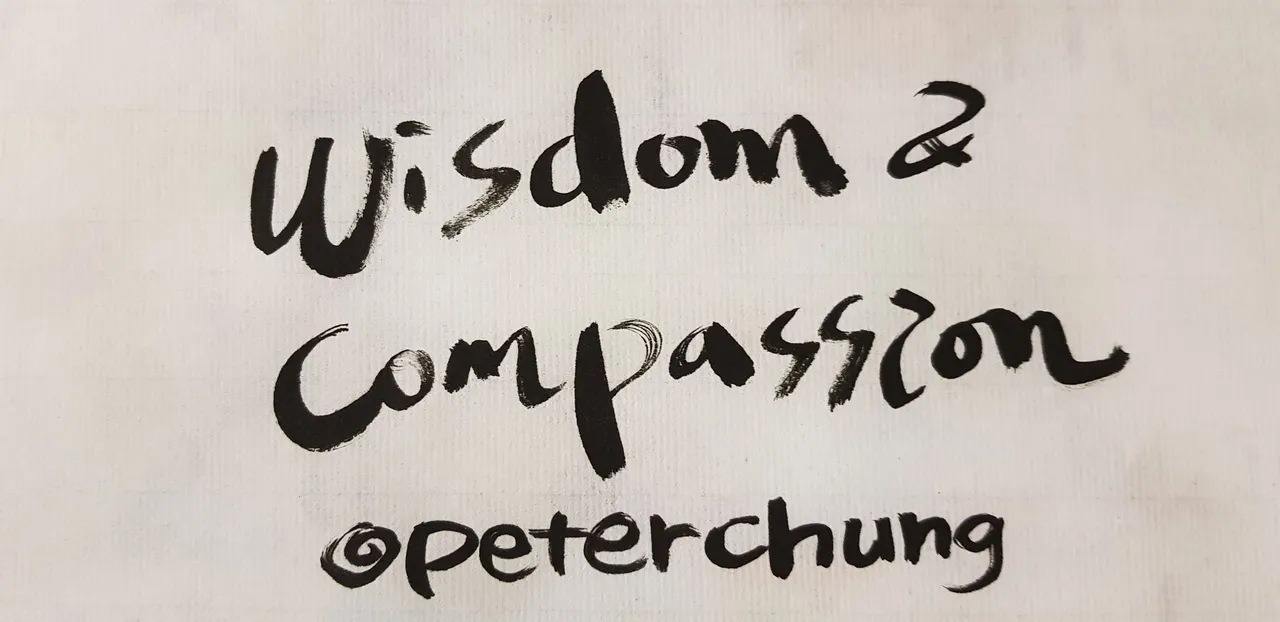 Wisdom &
Compassion
@peterchung